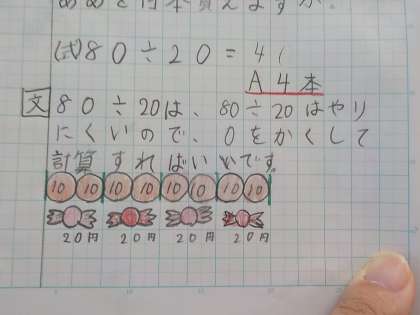 (式)80÷20=4(
A 4本
文 80÷20は、80÷20はやり
にくいので、0をかくして
計算すればいいです。
10 10 10 10 10 10 10 10
20円 20円 20円 20円